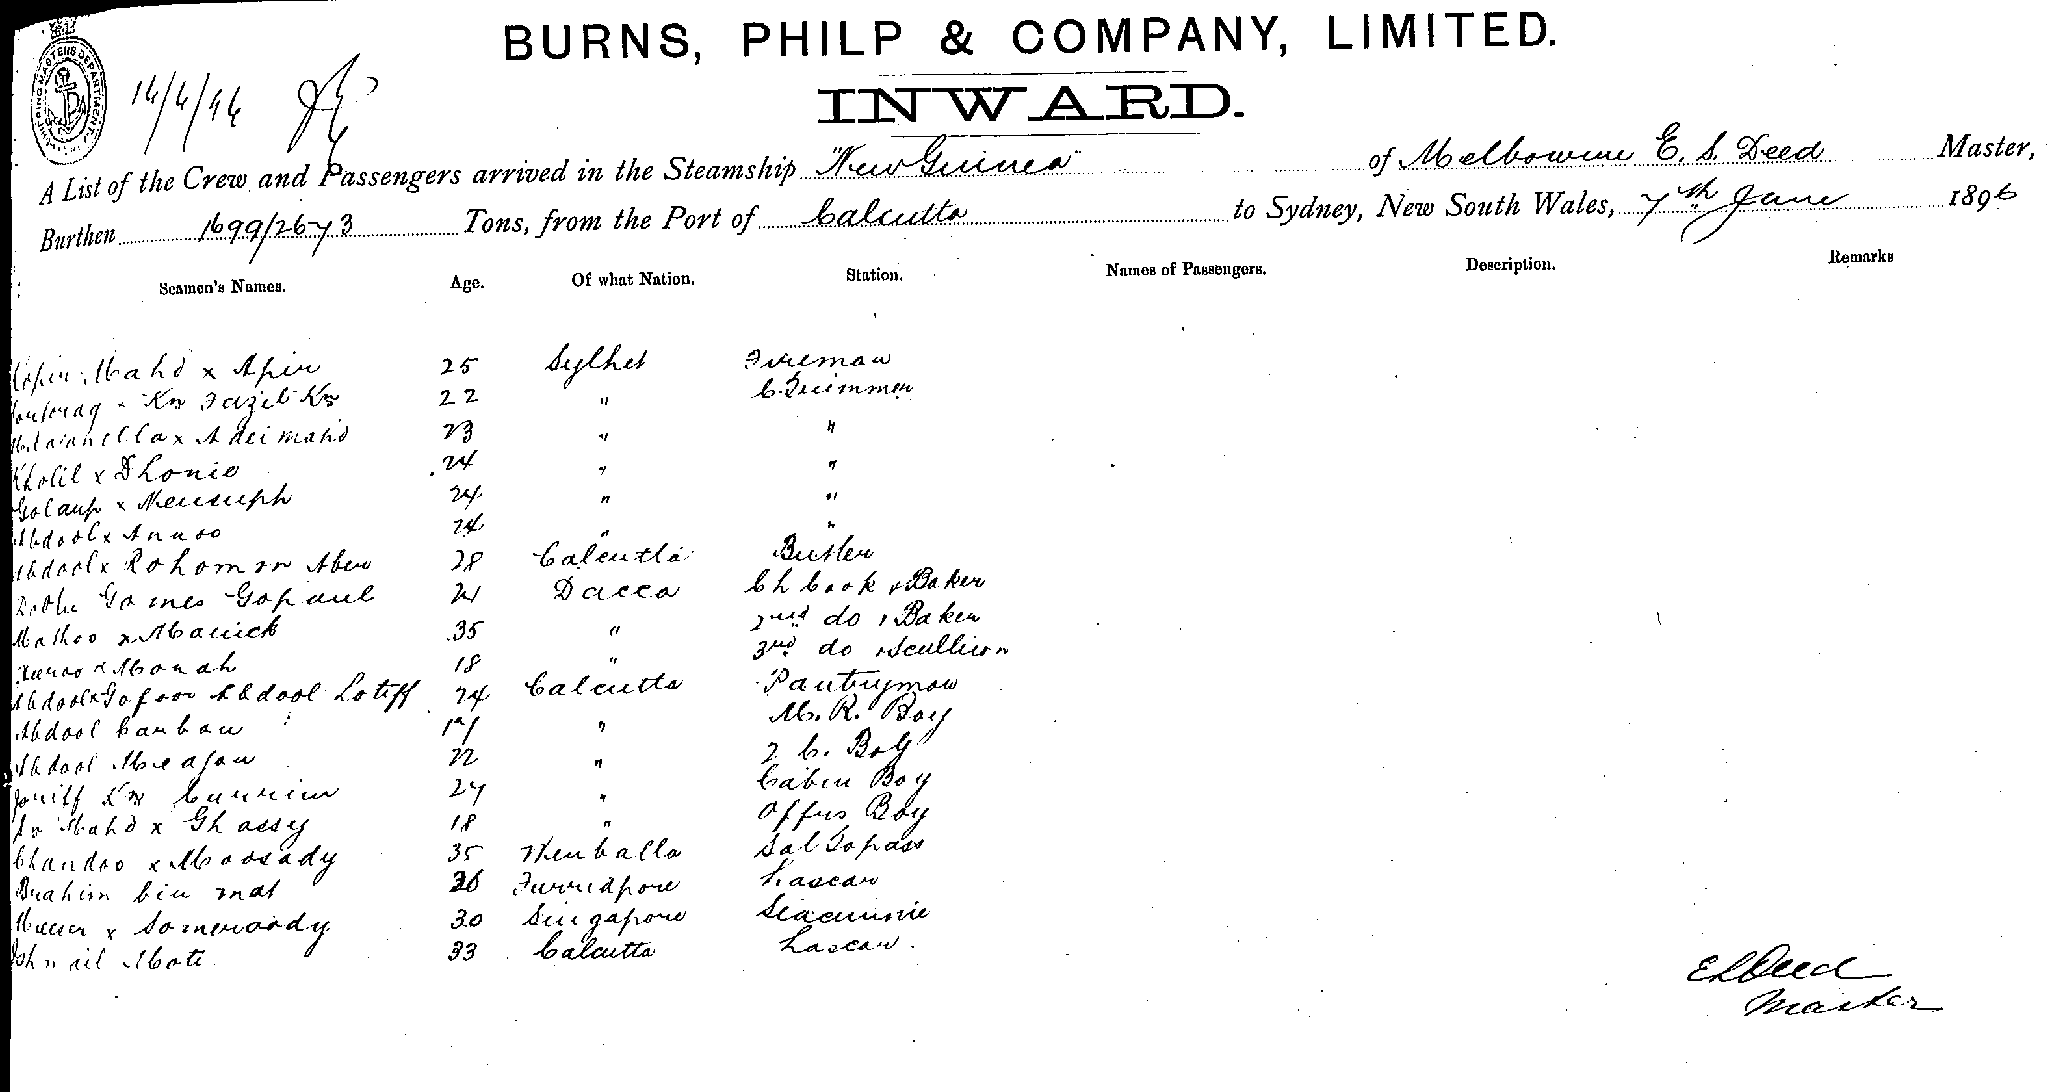 BURNS, PHILP & COMPANY, LIMITED.
INWARD.
A List of the Crew and Passengers arrived in the Steamship "New Guinea" of Melbourne E. S. Deed Master,
Burthen 1699/2673 Tons, from the Port of Calcutta to Sydney, New South Wales, 7th June 1896
Seamen's Names. Age. Of what Nation. Station. Names of Passengers. Description. Remarks
Mahd x Apin 25 Sylhet Fireman
Kn Fazil Kn 22 " C. Trimmer
x Adei mahd 23 " "
Kholil x Dhonie 24 " "
Golaup x Neusuph 24 " "
Abdool x Anuoo 24 " "
Abdool x Rohomon Aber 28 Calcutta Butler
Gomes Gopaul 21 Dacca Ch Cook & Baker
Mathoo x Manick 35 " 2nd do & Baker
x Monah 18 " 3rd do & Scullion
Abdool x Gofoor Abdool Lotiff 24 Calcutta Pantryman
Abdool Canbon 19 " M. R. Boy
Abdool Meajan 22 " 2 C. Boy
Kn Currim 24 " Cabin Boy
Mahd x Ghassy 18 " Offrs Boy
Chandoo x Moosady 35 Sal Topass
Brahim bin mat 36 Furridpore Lascar
x Someroody 30 Singapore Seacunnie
Ishmail Mote 33 Calcutta Lascar.
E S Deed
Master